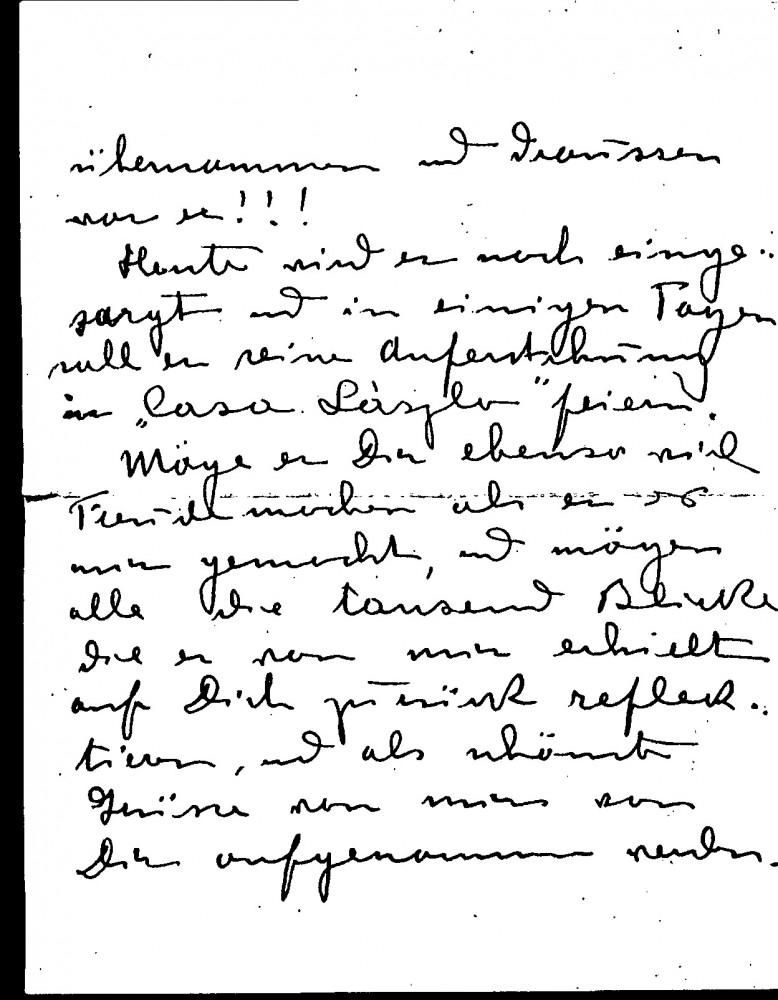 übernommen und draussen
war er!!!
Heute wird er noch einge-
sargt und in einigen Tagen
soll er seine Auferstehung
in „Casa László" feiern.
Möge er Dir ebenso viel
Freude machen als er es
mir gemacht, und mögen
alle die tausend Blicke
die er von mir erhielt
auf Dich zurück reflek-
tieren, und als schönste
Grüsse von mir von
Dir aufgenommen werden.